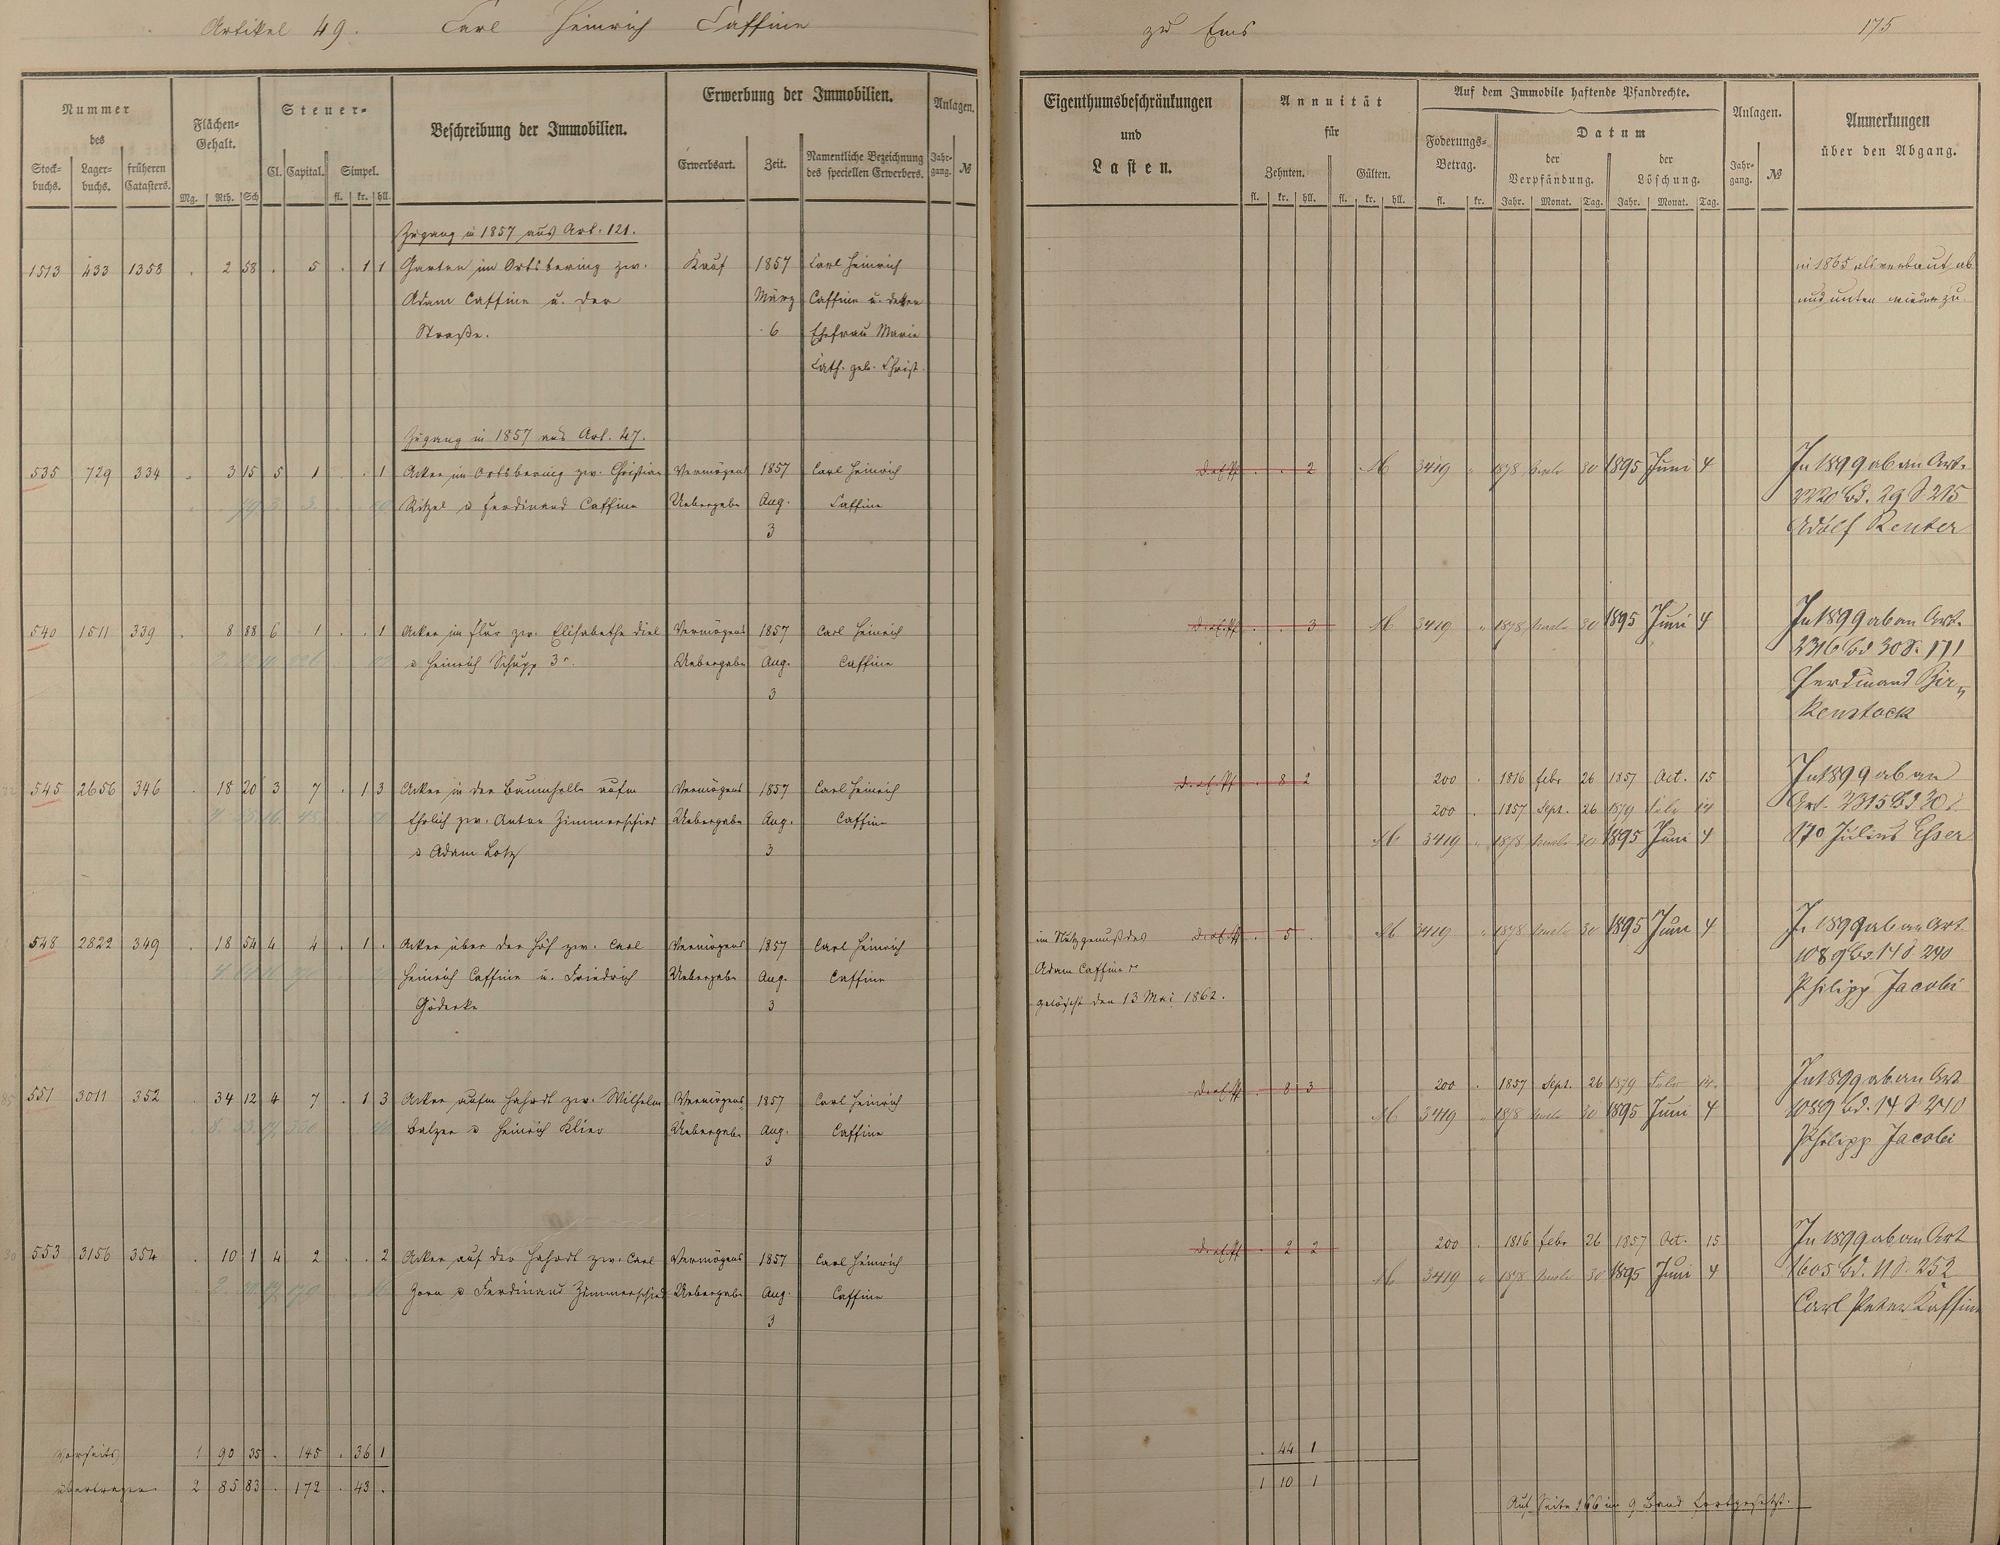 Artikel 49. Carl Heinrich Caffine zu Ems 175
Nummer
des
Stock-buchs. Lager-buchs. früheren Catasters.
Flächen-Gehalt.
Mg. Rth. Sch
Steuer-
Cl. Capital. Simpel.
fl. kr. hll.
Beschreibung der Immobilien.
Erwerbung der Immobilien.
Erwerbsart. Zeit. Namentliche Bezeichnung des speciellen Erwerbers.
Anlagen.
Jahr-gang. №
Eigenthumsbeschränkungen
und
Lasten.
Annuität
für
Zehnten. Gülten.
fl. kr. hll. fl. kr. hll.
Auf dem Immobile haftende Pfandrechte.
Foderungs-Betrag.
fl. kr.
Datum
der Verpfändung. der Löschung.
Jahr. Monat. Tag. Jahr. Monat. Tag.
Anlagen.
Jahr-gang. №
Anmerkungen
über den Abgang.
Zugang in 1857 aus Art. 121.
1513 433 1358 . 2 58 . 5 . 1 1 Garten im Ortsbering zw. Kauf 1857 Carl Heinrich in 1865 als verbaut ab
Adam Caffine u. der März Caffine u. dessen und unten wieder zu.
Straße. 6 Ehefrau Marie
Cath. geb. Christ.
Zugang in 1857 aus Art. 47.
535 729 334 . 3 15 5 1 . . 1 Acker im Ortsbering zw. Christian Vermögens 1857 Carl Heinrich . . 2 M 3419 1878 30 1895 Juni 4 In 1899 ab an Art.
Ritzel u Ferdinand Caffine Uebergabe Aug. Caffine 2220 Bd. 29 S 215
3 Adolf Reuter
540 1511 339 . 8 88 6 1 . . 1 Acker im Flur zw. Elisabethe Diel Vermögens 1857 Carl Heinrich . . 3 M 3419 1878 30 1895 Juni 4 In 1899 ab an Art.
u Heinrich Schupp 3r. Uebergabe Aug. Caffine 2316 Bd 30 S. 171
3 Ferdinand Bir-
kenstock
545 2656 346 . 18 20 3 7 . 1 3 Acker in der Baumhelle aufm Vermögens 1857 Carl Heinrich . 8 2 200 . 1816 Febr 26 1857 Oct. 15 In 1899 ab an
Ehrlich zw. Anton Zimmerschied Uebergabe Aug. Caffine 200 . 1857 Sept. 26 1879 Febr 14 Art. 2315 Bd 30 S
u Adam Lotz 3 M 3419 1878 30 1895 Juni 4 170 Julius Esser
548 2822 349 . 18 54 4 4 . 1 . Acker über der Höh zw. Carl Vermögens 1857 Carl Heinrich im Nutzgenuß des . 5 . M 3419 1878 30 1895 Juni 4 In 1899 ab an Art.
Heinrich Caffine u. Friedrich Uebergabe Aug. Caffine Adam Caffine 1089 Bd. 14 S 240
Gödecke 3 gelöscht den 13 Mai 1862. Philipp Jacobi
551 3011 352 . 34 12 4 7 . 1 3 Acker aufm Hahrdt zw. Wilhelm Vermögens 1857 Carl Heinrich . 8 3 200 . 1857 Sept. 26 1879 Febr 14. In 1899 ab an Art
Balzer u Heinrich Klier Uebergabe Aug. Caffine M 3419 1878 30 1895 Juni 4 1089 Bd. 14 S 240
3 Philipp Jacobi
553 3156 354 . 10 1 4 2 . . 2 Acker auf der Hahrdt zw. Carl Vermögens 1857 Carl Heinrich . 2 2 200 . 1816 Febr 26 1857 Oct. 15 In 1899 ab an Art
Zorn u Ferdinand Zimmerschied Uebergabe Aug. Caffine M 3419 1878 30 1895 Juni 4 1605 Bd. 11 S. 252
3 Carl Peter Caffine
Vorseits 1 90 35 . 145 . 36 1 . 44 1
übertragen 2 85 83 . 172 . 43 . 1 10 1
Auf Seite 166 im 9 Band fortgesetzt.